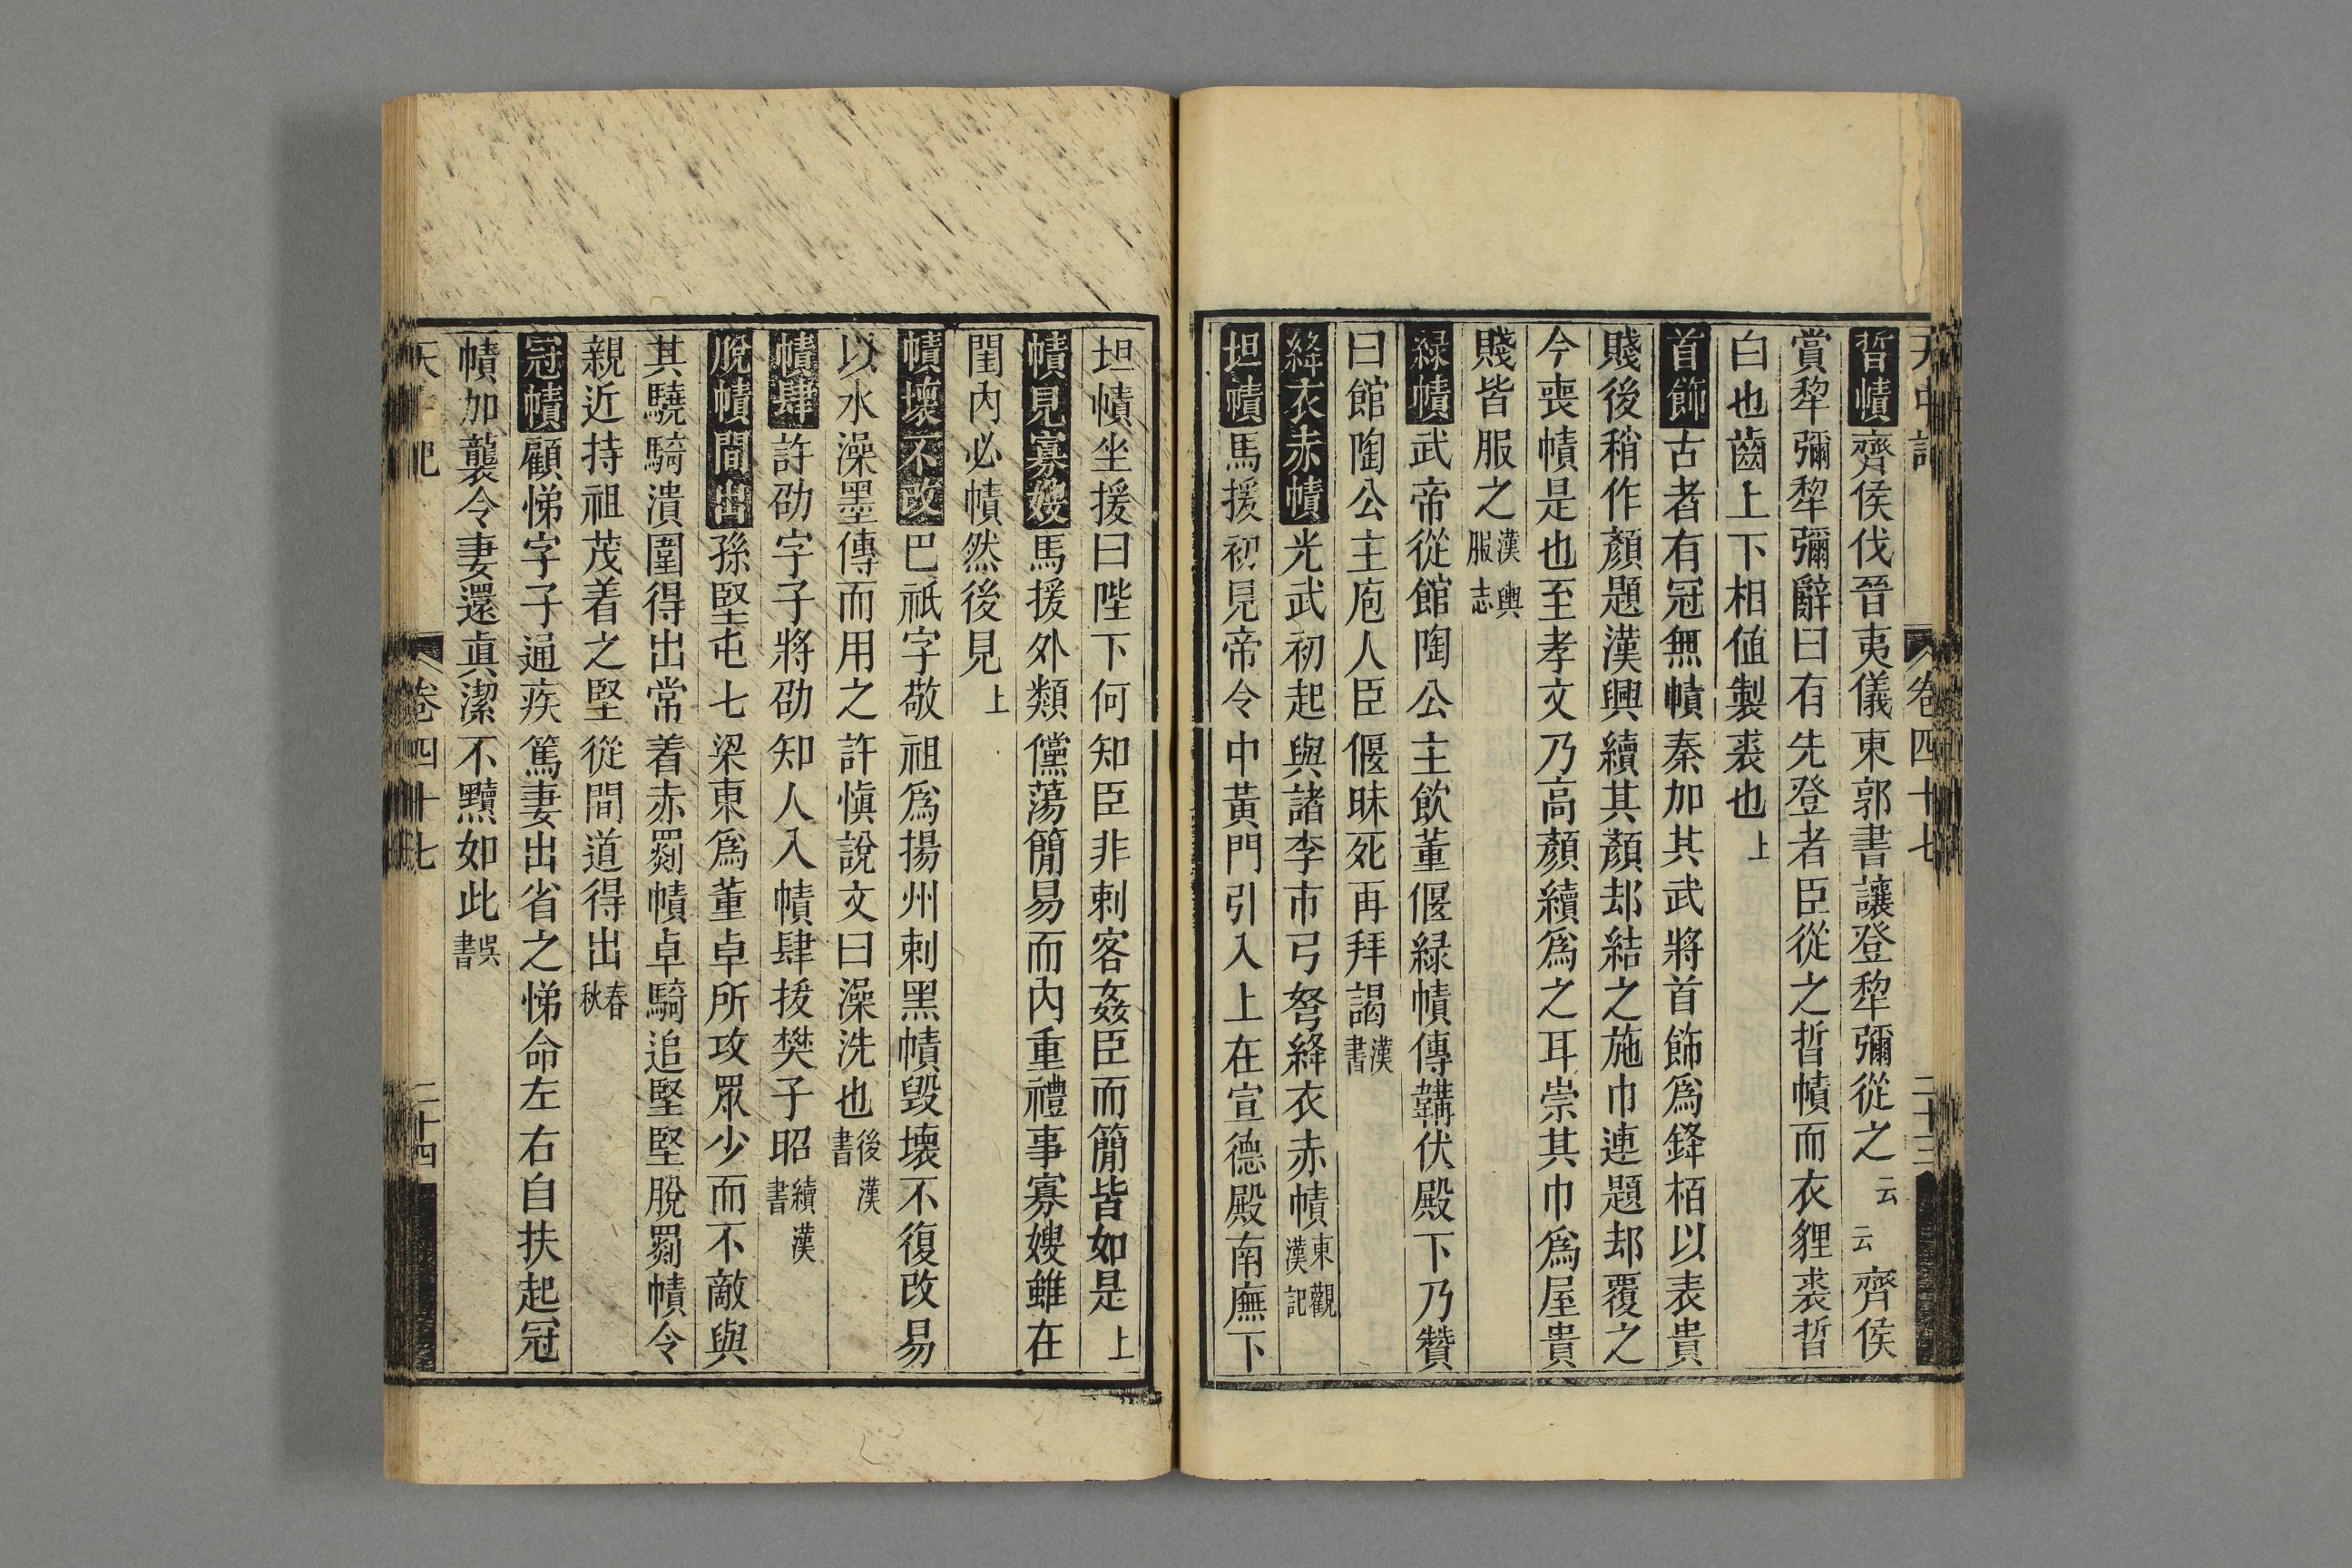 天中記 卷四十七 二十三
晢幘齊侯伐晉夷儀東郭書讓登犂彌從之云云齊侯
賞犂彌犂彌辭曰有先登者臣從之晢幘而衣貍裘晢
白也齒上下相値製裘也上
首飾古者有冠無幘秦加其武將首飾爲絳栢以表貴
賤後稍作顏題漢興續其顏却結之施巾連題却覆之
今喪幘是也至孝文乃高顏續爲之耳崇其巾爲屋貴
賤皆服之漢輿服志
緑幘武帝從館陶公主飲董偃緑幘傳韝伏殿下乃贊
曰館陶公主庖人臣偃昧死再拜謁漢書
絳衣赤幘光武初起與諸李市弓弩絳衣赤幘東觀漢記
坦幘馬援初見帝令中黃門引入上在宣德殿南廡下
坦幘坐援曰陛下何知臣非刺客姦臣而簡皆如是上
幘見寡嫂馬援外類儻蕩簡易而內重禮事寡嫂雖在
閨內必幘然後見上
幘壞不改巴祇字敬祖爲揚州刺黑幘毀壞不復改易
以水澡墨傳而用之許慎說文曰澡洗也後漢書
幘肆許劭字子將劭知人入幘肆拔樊子昭續漢書
脫幘間出孫堅屯七梁東爲董卓所攻眾少而不敵與
其驍騎潰圍得出常着赤罽幘卓騎追堅堅脫罽幘令
親近持祖茂着之堅從間道得出春秋
冠幘顧悌字子通疾篤妻出省之悌命左右自扶起冠
幘加襲令妻還眞潔不黷如此吳書
卷四十七 二十四